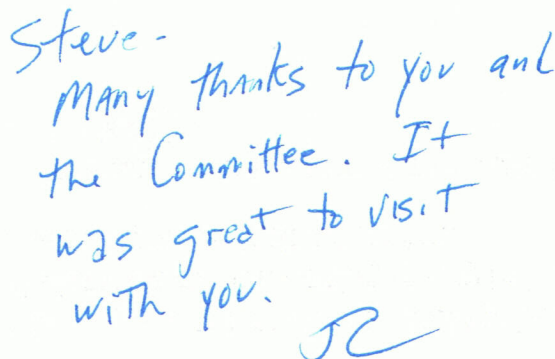 Steve-
Many thanks to you and
the Committee. It
was great to visit
with you.
JC